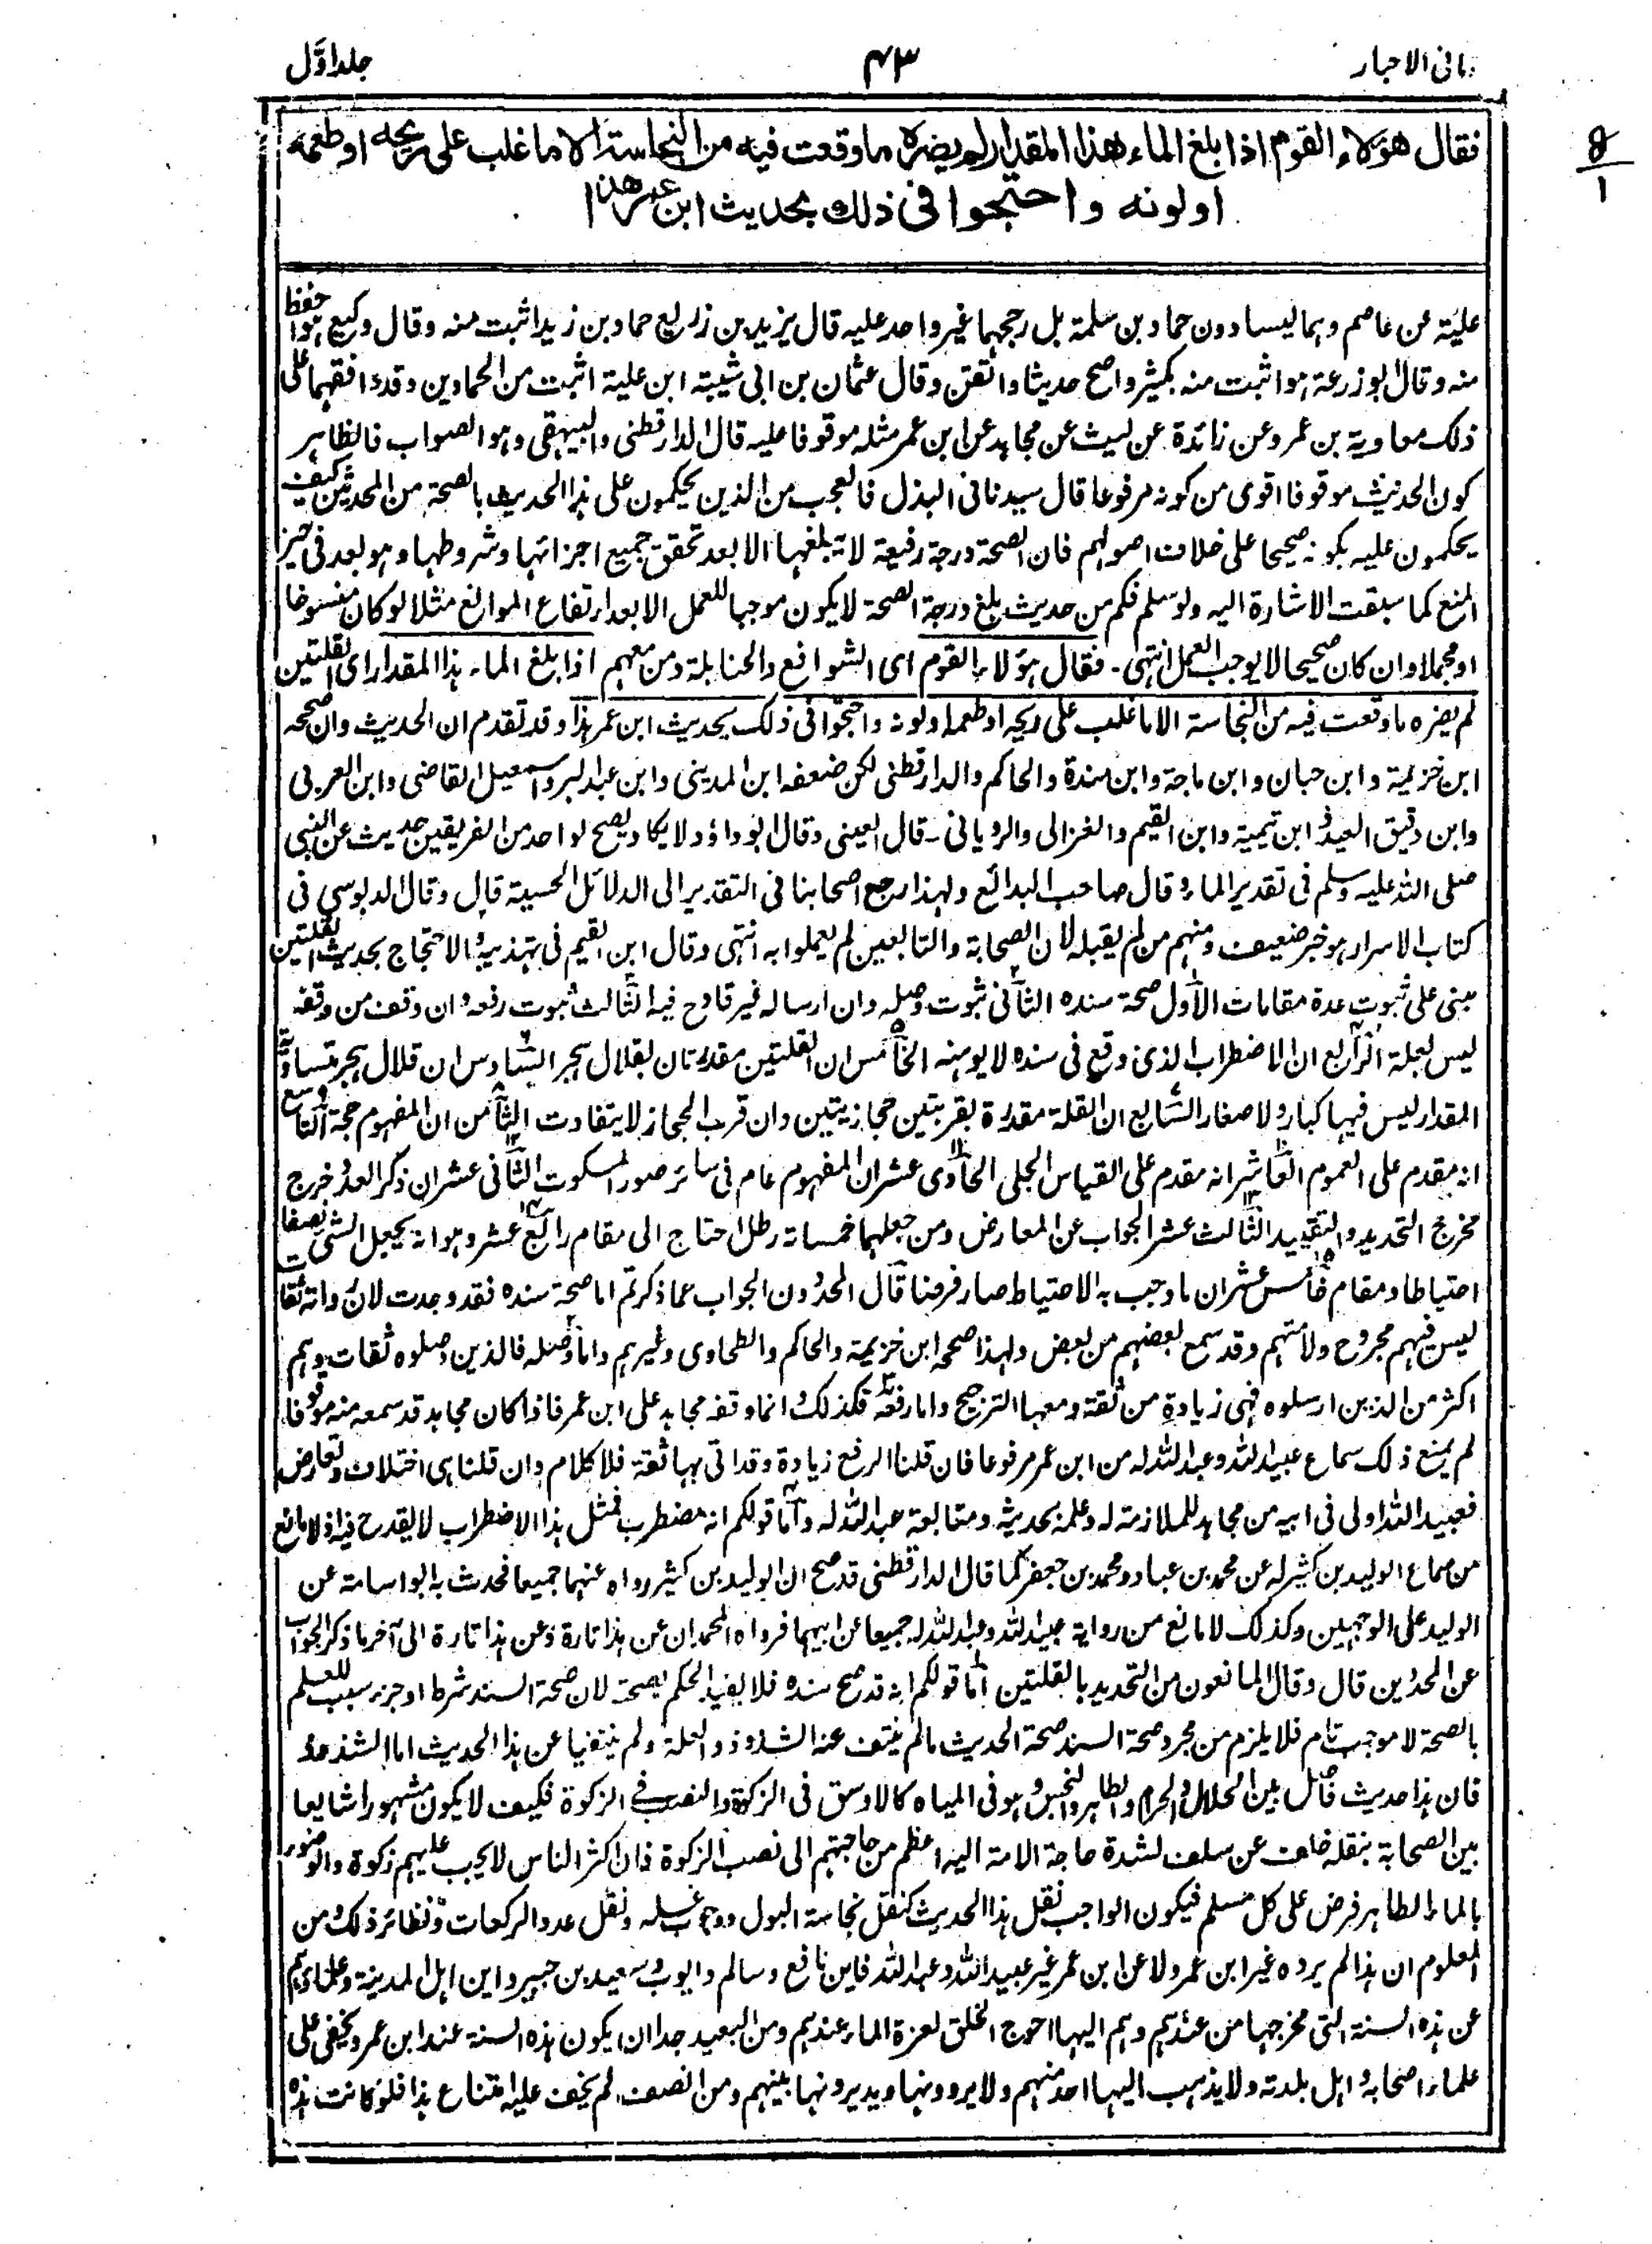 مانی الاحبار
۴۳
جلد اوَّل
۴/۱
فقال هؤلاء القوم اذا بلغ الماء هذا المقدار لم يضره ما وقعت فيه من النجاسة الا ما غلب على ريحه او طعمه
او لونه واحتجوا فى ذلك بحديث ابن عمر هذا
علية عن عاصم وهما ليسا دون حماد بن سلمة بل رجحهما غير واحد عليه قال يزيد بن زريع حماد بن زيد اثبت منه وقال وكيع هو احفظ
منه وقال ابو زرعة هو اثبت منه بكثير واصح حديثا واتقن وقال عثمان بن ابى شيبة ابن علية اثبت من الحمادين وقد وافقهما على
ذلك معاوية بن عمرو عن زائدة عن ليث عن مجاهد عن ابن عمر مثله موقوفا عليه قال الدارقطنى والبيهقى وهو الصواب فالظاهر
كون الحديث موقوفا اقوى من كونه مرفوعا قال سيدنا فى البذل فالعجب من الذين يحكمون على هذا الحديث بالصحة من المحدثين كيف
يحكمون عليه بكونه صحيحا على خلاف اصولهم فان الصحة درجة رفيعة لا تبلغها الا بعد تحقق جميع اجزائها وشروطها وهو بعد فى حيز
المنع كما سبقت الاشارة اليه ولو سلم فكم من حديث بلغ درجة الصحة لا يكون موجبا للعمل الا بعد ارتفاع الموانع مثلا لو كان منسوخا
او مجملا وان كان صحيحا لا يوجب العمل انتهى ۔ فقال هؤلاء القوم اى الشوافع والحنابلة ومن معهم اذا بلغ الماء هذا المقدار اى القلتين
لم يضره ما وقعت فيه من النجاسة الا ما غلب على ريحه او طعمه او لونه واحتجوا فى ذلك بحديث ابن عمر هذا وقد تقدم ان الحديث وان صححه
ابن خزيمة وابن حبان وابن ماجة وابن مندة والحاكم والدارقطنى لكن ضعفه ابن المدينى وابن عبد البر واسمعيل القاضى وابن العربى
وابن دقيق العيد وابن تيمية وابن القيم والغزالى والرويانى ۔ قال العينى وقال ابو داؤد لا يكاد يصح لواحد من الفريقين حديث عن النبى
صلى الله عليه وسلم فى تقدير الماء وقال صاحب البدائع ولهذا رجع اصحابنا فى التقدير الى الدلائل الحسية قال وقال الدبوسى فى
كتاب الاسرار هو خبر ضعيف ومنهم من لم يقبله لان الصحابة والتابعين لم يعملوا به انتهى وقال ابن القيم فى تهذيبه والاحتجاج بحديث القلتين
مبنى على ثبوت عدة مقامات الاول صحة سنده الثانى ثبوت وصله وان ارساله غير قادح فيه الثالث ثبوت رفعه وان وقف من وقفه
ليس بعلة الرابع ان الاضطراب الذى وقع فى سنده لا يوهنه الخامس ان القلتين مقدرتان بقلال هجر السادس ان قلال هجر متساوية
المقدار ليس فيها كبار ولا صغار السابع ان القلة مقدرة بقربتين حجازيتين وان قرب الحجاز لا يتفاوت الثامن ان المفهوم حجة التاسع
انه مقدم على العموم العاشر انه مقدم على القياس الجلى الحادى عشر ان المفهوم عام فى سائر صور المسكوت الثانى عشر ان ذكر العدد خرج
مخرج التحديد والتقييد الثالث عشر الجواب عن المعارض ومن جعلهما خمسمائة رطل احتاج الى مقام رابع عشر وهو انه يجعل الشئ نصفا
احتياطا ومقام خامس عشر ان ما وجب به الاحتياط صار فرضا قال المحددون الجواب عما ذكرتم اما صحة سنده فقد وجدت لان رواته ثقات
ليس فيهم مجروح ولا متهم وقد سمع بعضهم من بعض ولهذا صححه ابن خزيمة والحاكم والطحاوى وغيرهم واما وصله فالذين وصلوه ثقات وهم
اكثر من الذين ارسلوه فهى زيادة من ثقة ومعها الترجيح واما رفعه فكذلك وانما وقفه مجاهد على ابن عمر فاذا كان مجاهد قد سمعه منه موقوفا
لم يمنع ذلك سماع عبيد الله وعبد الله له من ابن عمر مرفوعا فان قلنا الرفع زيادة وقد اتى بها ثقة فلا كلام وان قلنا هى اختلاف وتعارض
فعبيد الله اولى فى ابيه من مجاهد للملازمته له وعلمه بحديثه ومتابعة عبد الله له واما قولكم انه مضطرب فمثل هذا الاضطراب لا يقدح فيه اذ لا مانع
من سماع الوليد بن كثير له عن محمد بن عباد ومحمد بن جعفر كما قال الدارقطنى قد صح ان الوليد بن كثير رواه عنهما جميعا فحدث به ابو اسامة عن
الوليد على الوجهين وكذلك لا مانع من رواية عبيد الله وعبد الله له جميعا عن ابيهما فرواه المحمدان عن هذا تارة وعن هذا تارة الى آخر ما ذكر الجواب
عن المحددين قال وقال المانعون من التحديد بالقلتين اما قولكم انه قد صح سنده فلا يفيد الحكم بصحته لان صحة السند شرط او جزء سبب للعلم
بالصحة لا موجب تام فلا يلزم من مجرد صحة السند صحة الحديث ما لم ينتف عنه الشذوذ والعلة ولم ينتفيا عن هذا الحديث اما الشذوذ
فان هذا حديث فاصل بين الحلال والحرام والطاهر والنجس وهو فى المياه كالاوسق فى الزكوة والنصب فى الزكوة فكيف لا يكون مشهورا شايعا
بين الصحابة ينقله خلف عن سلف لشدة حاجة الامة اليه اعظم من حاجتهم الى نصب الزكوة فان اكثر الناس لا يجب عليهم زكوة والوضوء
بالماء الطاهر فرض على كل مسلم فيكون الواجب نقل هذا الحديث كنقل نجاسة البول ووجوب غسله ونقل عدد الركعات ونظائر ذلك ومن
المعلوم ان هذا لم يروه غير ابن عمر ولا عن ابن عمر غير عبيد الله وعبد الله فاين نافع وسالم وايوب وسعيد بن جبير واين اهل المدينة وعلماؤهم
عن هذه السنة التى مخرجها من عندهم وهم اليها احوج الخلق لعزة الماء عندهم ومن البعيد جدا ان يكون هذه السنة عند ابن عمر ويخفى على
علماء اصحابه واهل بلدته ولا يذهب اليها احد منهم ولا يروونها ويديرونها بينهم ومن انصف لم يخف عليه امتناع هذا فلو كانت هذه